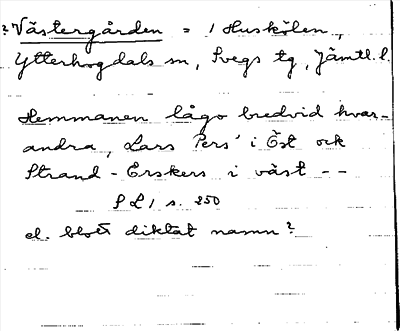 ? Västergården = i Huskölen,
Ytterhogdals sn, Svegs tg, Jämtl. l.
Hemmanen lågo bredvid hvar-
andra, Lars Pers' i Öst ock
Strand - Erskers i väst - -
S L 1 s. 250
el. blott diktat namn?